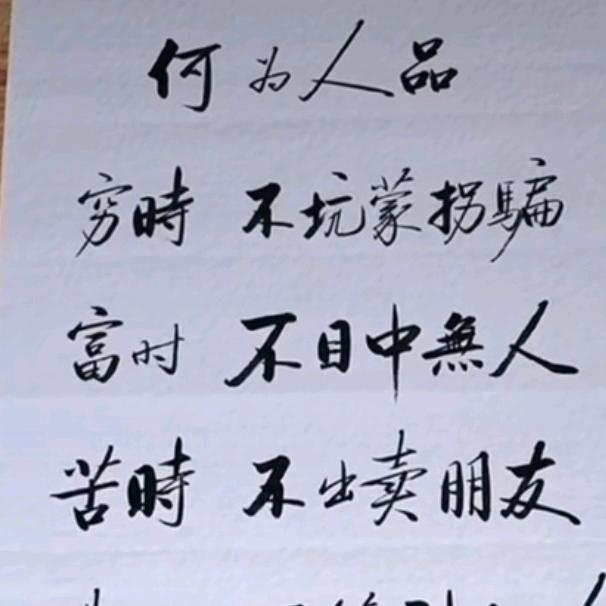 何为人品
穷時 不坑蒙拐騙
富时 不目中無人
苦時 不出卖朋友